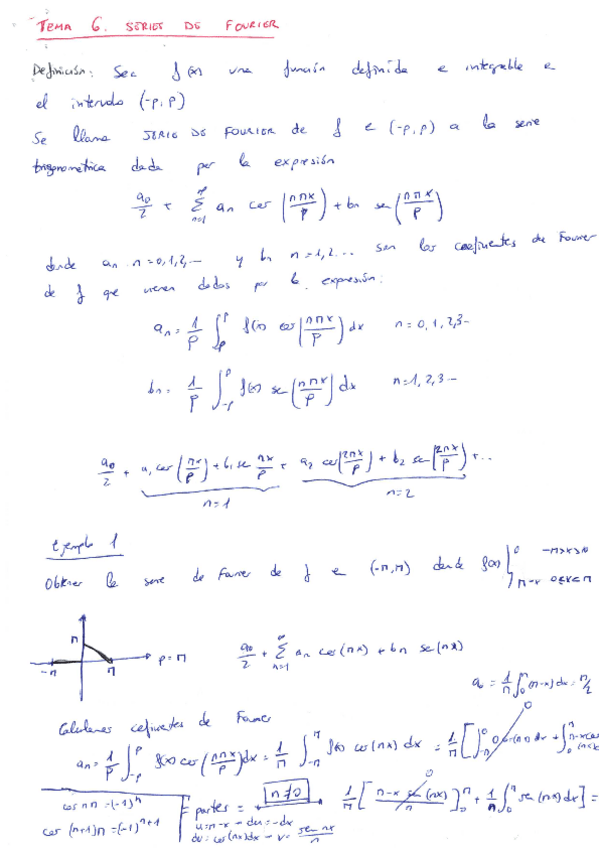 TEMA 6. SERIES DE FOURIER
Definición: Sea f(x) una función definida e integrable e
el intervalo (-p, p)
Se llama SERIE DE FOURIER de f e (-p, p) a la serie
trigonometrica dada por la expresión
a0/2 + ∑_{n=1}^{∞} an cos(nπx/p) + bn sen(nπx/p)
donde an n=0,1,2,... y bn n=1,2... son los coeficientes de Fourier
de f que vienen dados por la expresión:
an = 1/p ∫_{-p}^{p} f(x) cos(nπx/p) dx n=0,1,2,3...
bn = 1/p ∫_{-p}^{p} f(x) sen(nπx/p) dx n=1,2,3...
a0/2 + a1 cos(πx/p) + b1 sen πx/p + a2 cos(2πx/p) + b2 sen(2πx/p) + ...
n=1 n=2
Ejemplo 1
Obtener la serie de Fourier de f en (-π,π) donde f(x) { 0
π-x
π
-π π p=π
a0/2 + ∑_{n=1}^{∞} an cos(nx) + bn sen(nx)
a0 = 1/π ∫_0^π (π-x) dx = π/2
Calculamos coeficientes de Fourier
an = 1/p ∫_{-p}^{p} f(x) cos(nπx/p) dx = 1/π ∫_{-π}^{π} f(x) cos(nx) dx = 1/π [∫_{-π}^{0} 0 cos(nx) dx + ∫_0^π
0
cos nπ = (-1)^n
cos (n+1)π = (-1)^{n+1}
= partes = n≠0
u=π-x → du=-dx
dv=cos(nx)dx → v= sen nx/n
1/π [π-x sen(nx)/n]_0^π + 1/n ∫_0^π sen(nx) dx] =
0